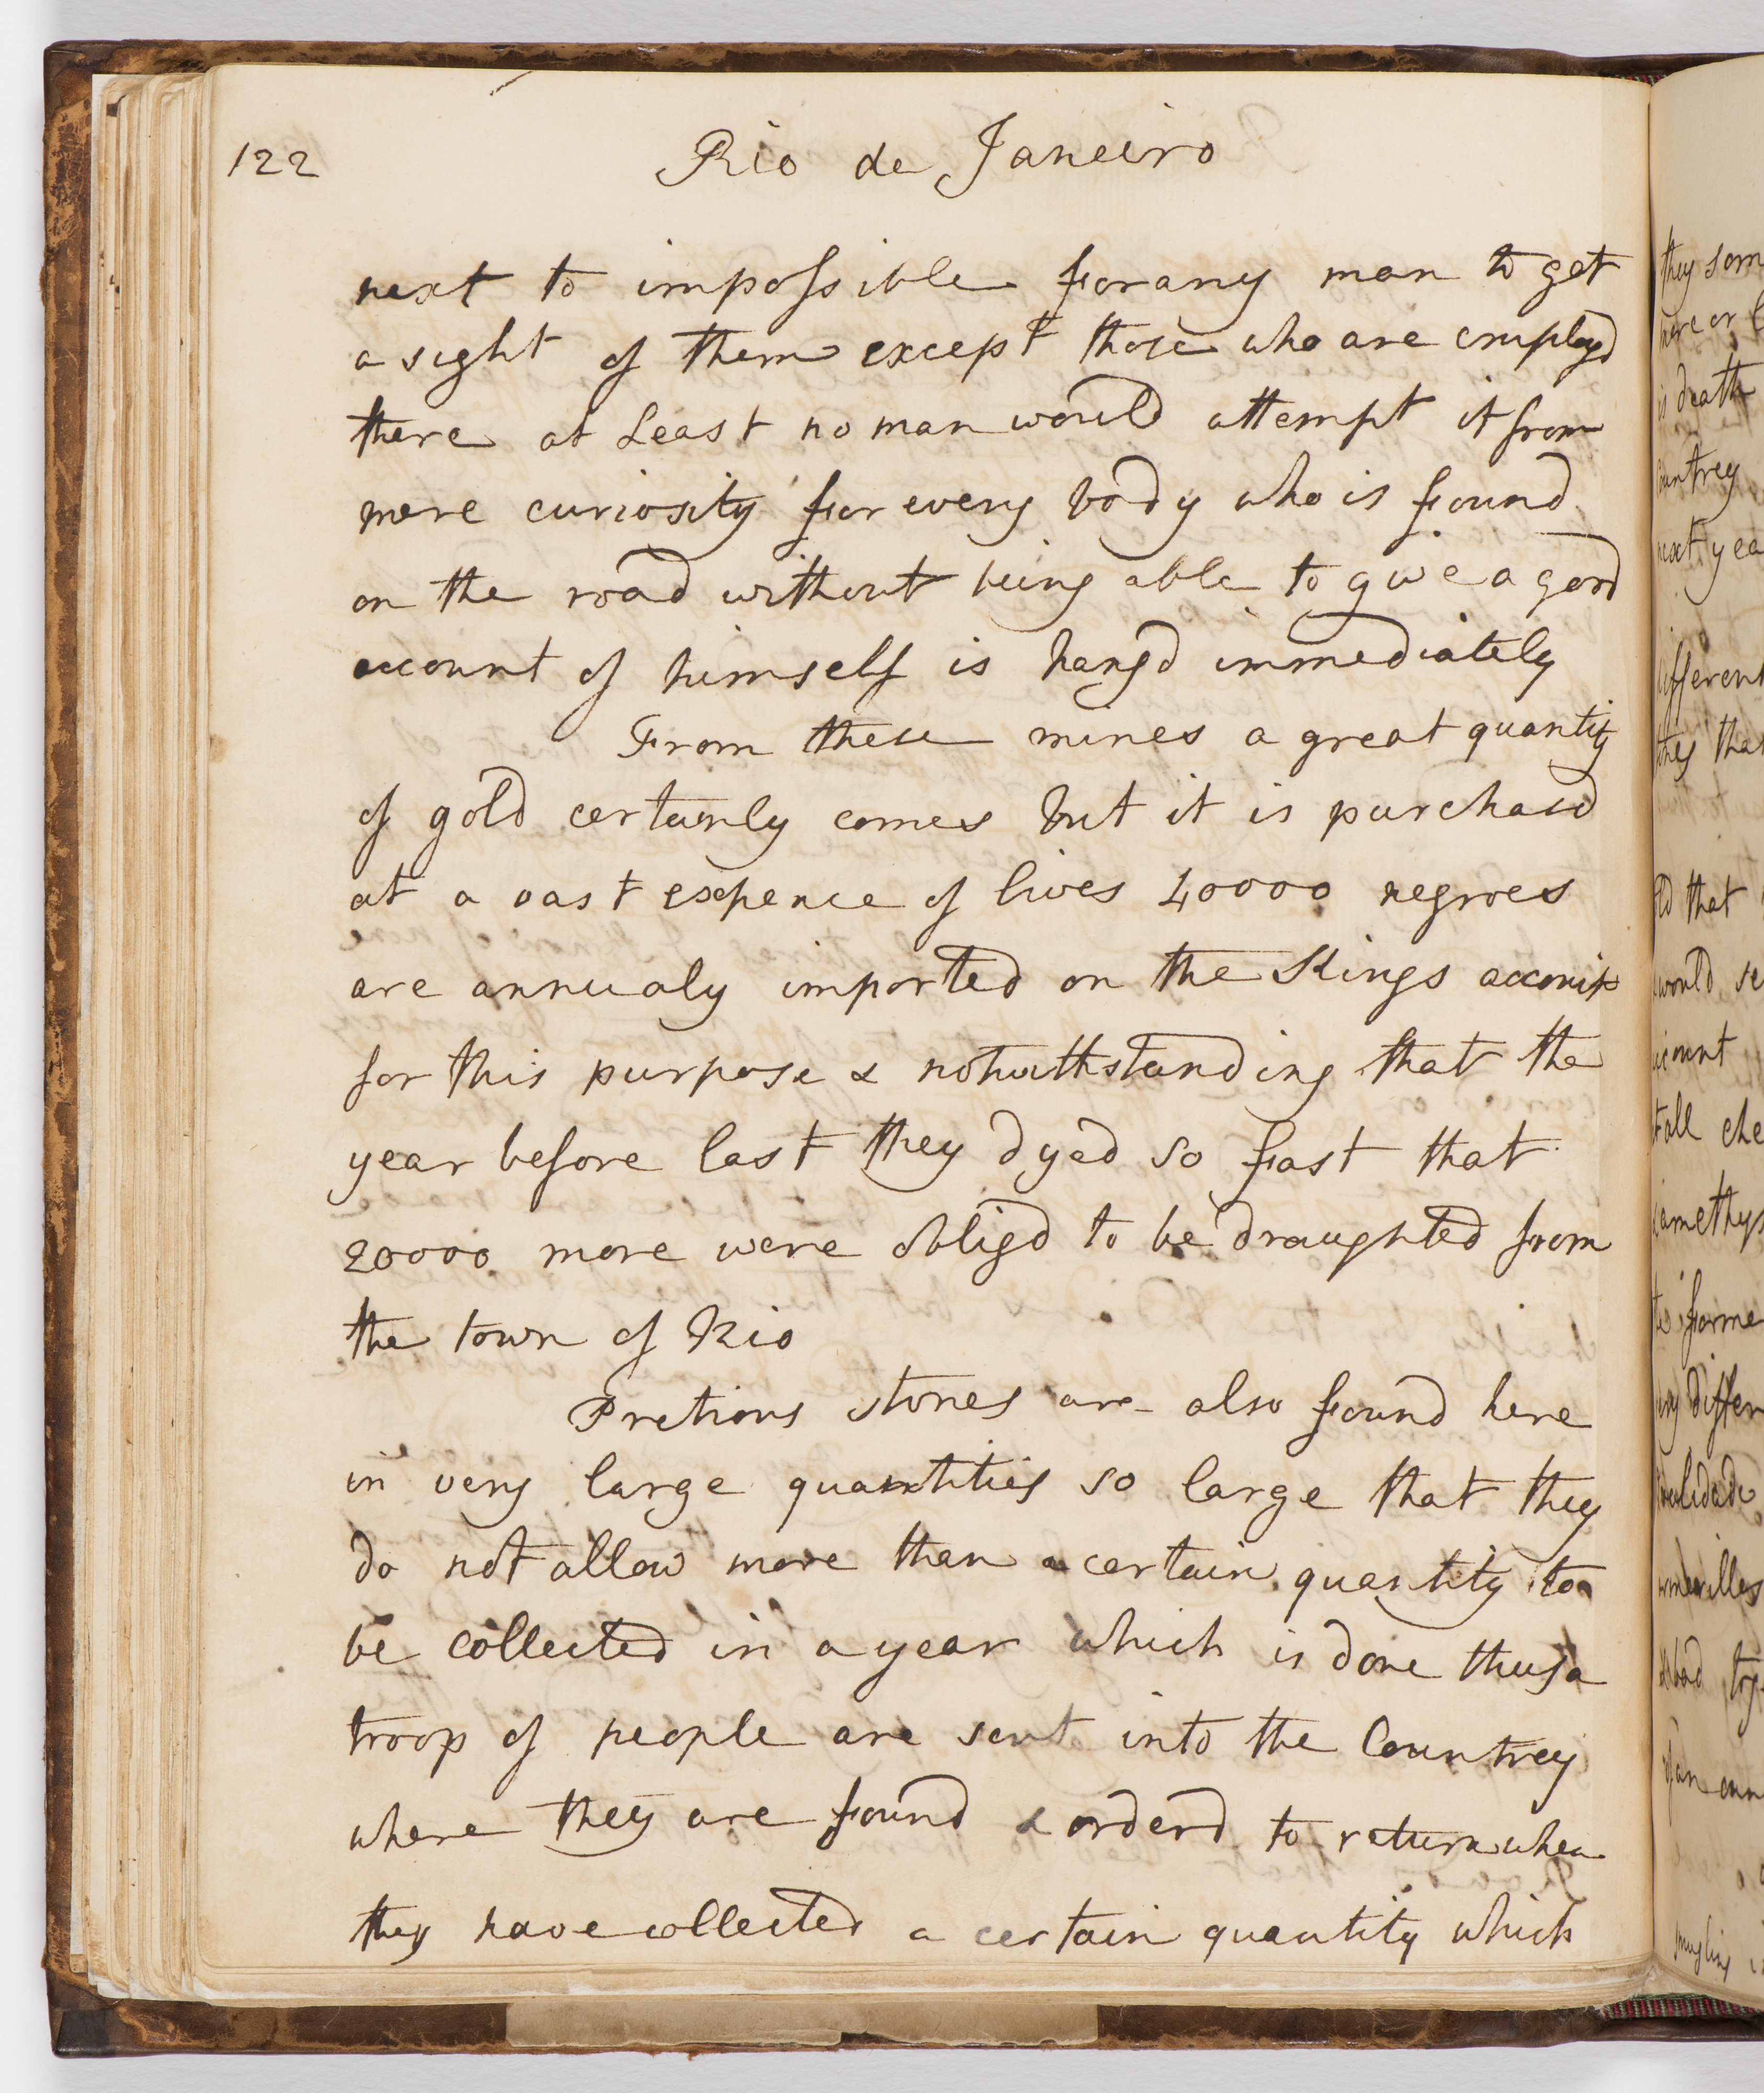 122
Rio de Janeiro
next to impossible for any man to get
a sight of them except those who are employd
there at Least no man would attempt it from
mere curiosity for every body who is found
on the road without being able to give a good
account of himself is hangd immediately
From these mines a great quantity
of gold certainly comes but it is purchasd
at a vast expence of lives 40000 negroes
are annualy imported on the Kings account
for this purpose & notwithstanding that the
year before last they dyed so fast that
20000 more were obligd to be draughted from
the town of Rio
Pretious stones are also found here
in very large quantities so large that they
do not allow more than a certain quantity to
be collected in a year which is done thus a
troop of people are sent into the Countrey
where they are found & orderd to return when
they have collected a certain quantity which
is death
Countrey
different
that
would
account
all